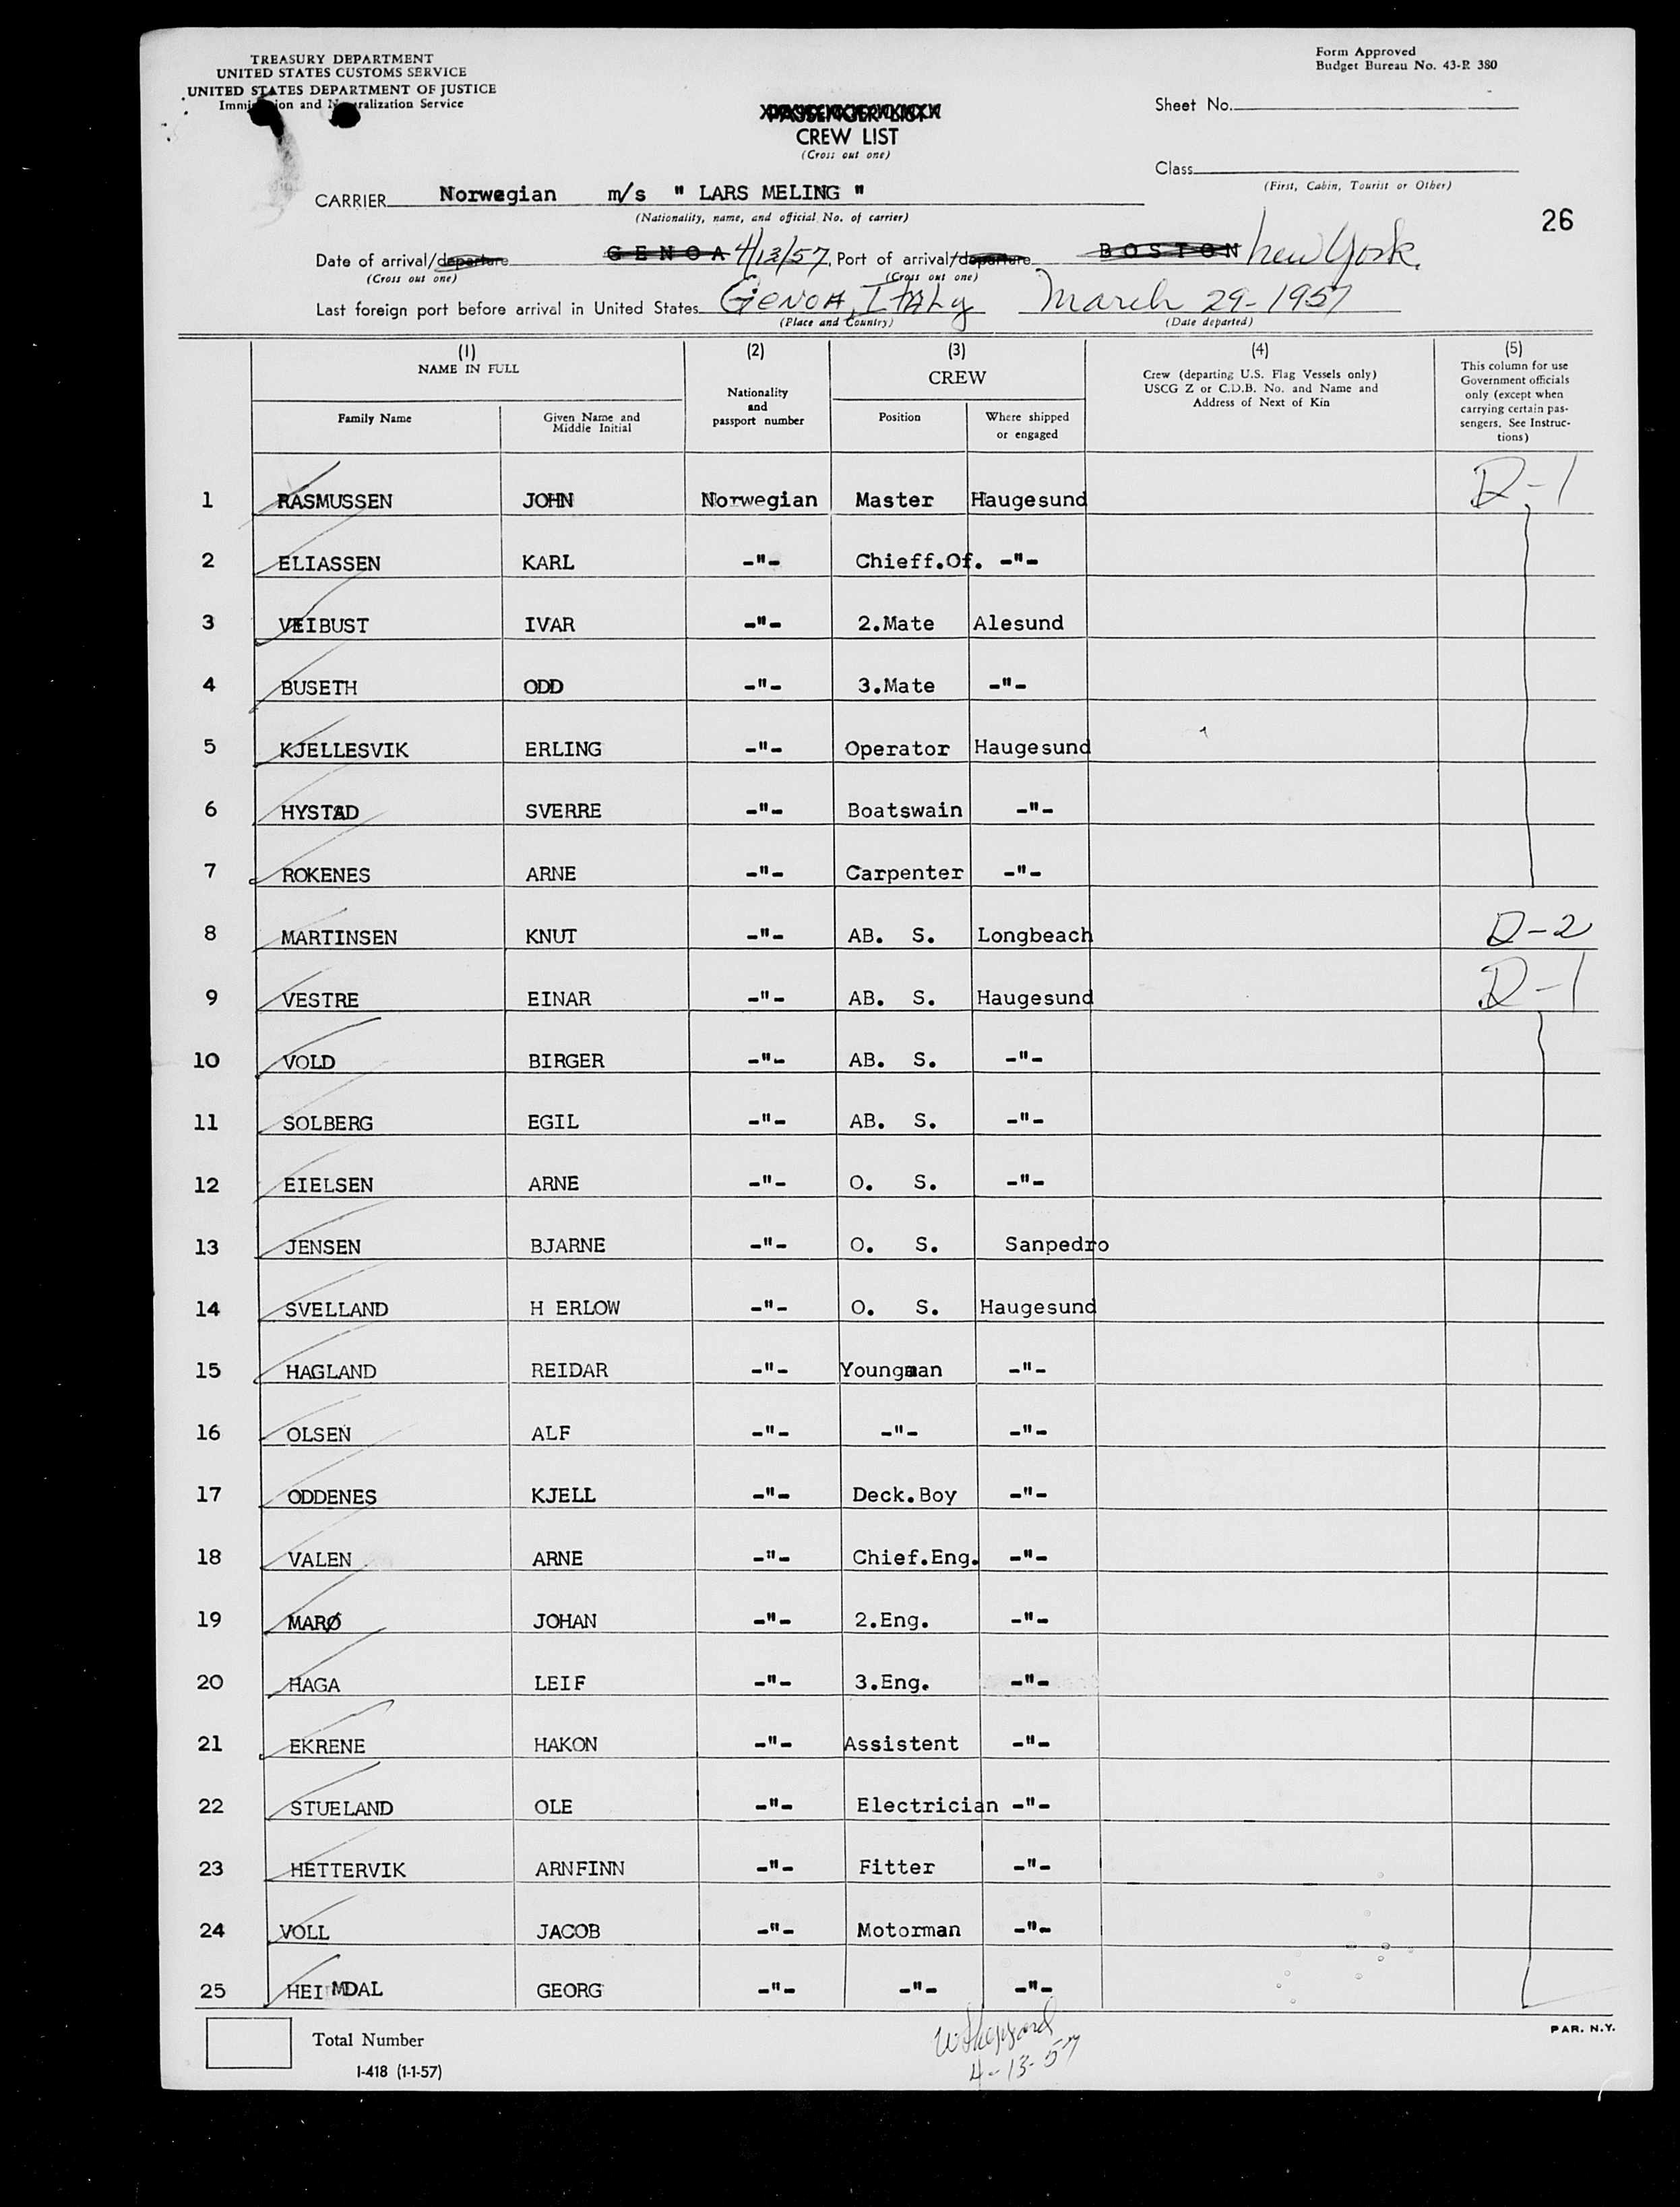 TREASURY DEPARTMENT
UNITED STATES CUSTOMS SERVICE
UNITED STATES DEPARTMENT OF JUSTICE
Immigration and Naturalization Service
Form Approved
Budget Bureau No. 43-R 380
PASSENGER LIST
CREW LIST
(Cross out one)
Sheet No.
Class
(First, Cabin, Tourist or Other)
CARRIER Norwegian m/s " LARS MELING "
(Nationality, name, and official No. of carrier)
26
Date of arrival/departure GENOA 4/13/57, Port of arrival/departure BOSTON New York.
(Cross out one) (Cross out one)
Last foreign port before arrival in United States GENOA, ITALY March 29-1957
(Place and Country) (Date departed)
(1) NAME IN FULL
Family Name
Given Name and Middle Initial
(2) Nationality and passport number
(3) CREW
Position
Where shipped or engaged
(4) Crew (departing U.S. Flag Vessels only) USCG Z or C.D.B. No. and Name and Address of Next of Kin
(5) This column for use Government officials only (except when carrying certain passengers. See Instructions)
1 RASMUSSEN JOHN Norwegian Master Haugesund D-1
2 ELIASSEN KARL -"- Chieff.Of. -"-
3 VEIBUST IVAR -"- 2.Mate Alesund
4 BUSETH ODD -"- 3.Mate -"-
5 KJELLESVIK ERLING -"- Operator Haugesund
6 HYSTAD SVERRE -"- Boatswain -"-
7 ROKENES ARNE -"- Carpenter -"-
8 MARTINSEN KNUT -"- AB. S. Longbeach D-2
9 VESTRE EINAR -"- AB. S. Haugesund D-1
10 VOLD BIRGER -"- AB. S. -"-
11 SOLBERG EGIL -"- AB. S. -"-
12 EIELSEN ARNE -"- O. S. -"-
13 JENSEN BJARNE -"- O. S. Sanpedro
14 SVELLAND H ERLOW -"- O. S. Haugesund
15 HAGLAND REIDAR -"- Youngman -"-
16 OLSEN ALF -"- -"- -"-
17 ODDENES KJELL -"- Deck.Boy -"-
18 VALEN ARNE -"- Chief.Eng. -"-
19 MARØ JOHAN -"- 2.Eng. -"-
20 HAGA LEIF -"- 3.Eng. -"-
21 EKRENE HAKON -"- Assistent -"-
22 STUELAND OLE -"- Electrician -"-
23 HETTERVIK ARNFINN -"- Fitter -"-
24 VOLL JACOB -"- Motorman -"-
25 HEIMDAL GEORG -"- -"- -"-
Total Number
I-418 (1-1-57)
4-13-57
PAR. N.Y.